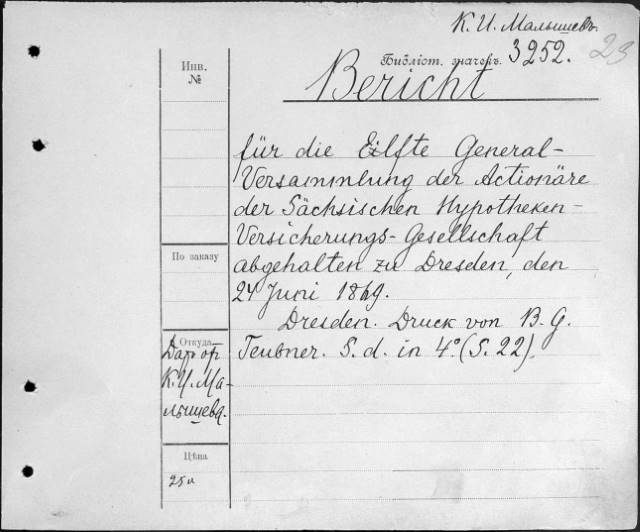 К. И. Малышевъ.
Библіот. значекъ. 3252. 23
Bericht
Инв.
№
für die Eilfte General-
Versammlung der Actionäre
der Sächsischen Hypotheken-
Versicherungs-Gesellschaft
abgehalten zu Dresden, den
24 Juni 1869.
Dresden. Druck von B. G.
Teubner. S. d. in 4° (S. 22).
По заказу
Откуда
Даръ от
К. И. Ма-
лышева.
Цѣна
25 к